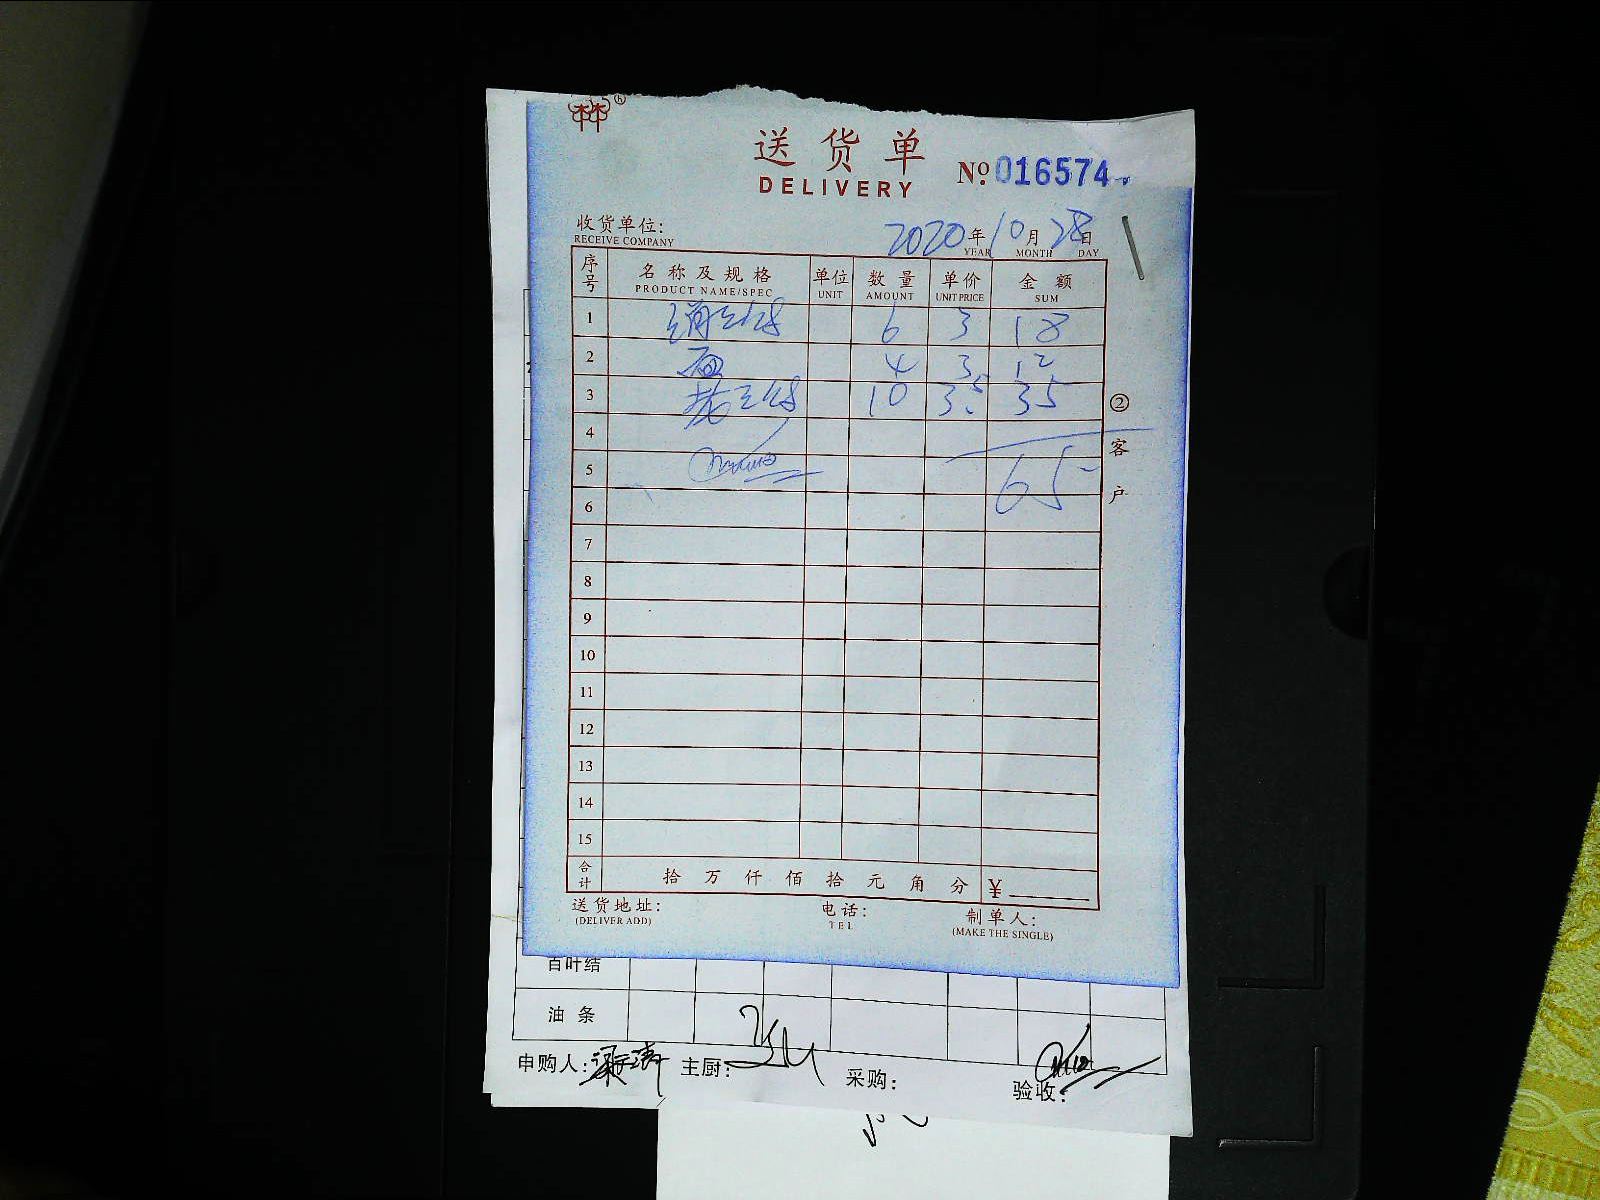 送货单
DELIVERY
No. 016574
收货单位:
RECEIVE COMPANY
2020年10月28日
YEAR MONTH DAY
序号 名称及规格 单位 数量 单价 金额
PRODUCT NAME/SPEC UNIT AMOUNT UNIT PRICE SUM
1 6 3 18
2 面 4 3 12
3 10 3.5 35
4
5 65
6
7
8
9
10
11
12
13
14
15
合计 拾万仟佰拾元角分 ¥
② 客户
送货地址: 电话: 制单人:
(DELIVER ADD) TEL (MAKE THE SINGLE)
百叶结
油条
申购人: 主厨: 采购: 验收: